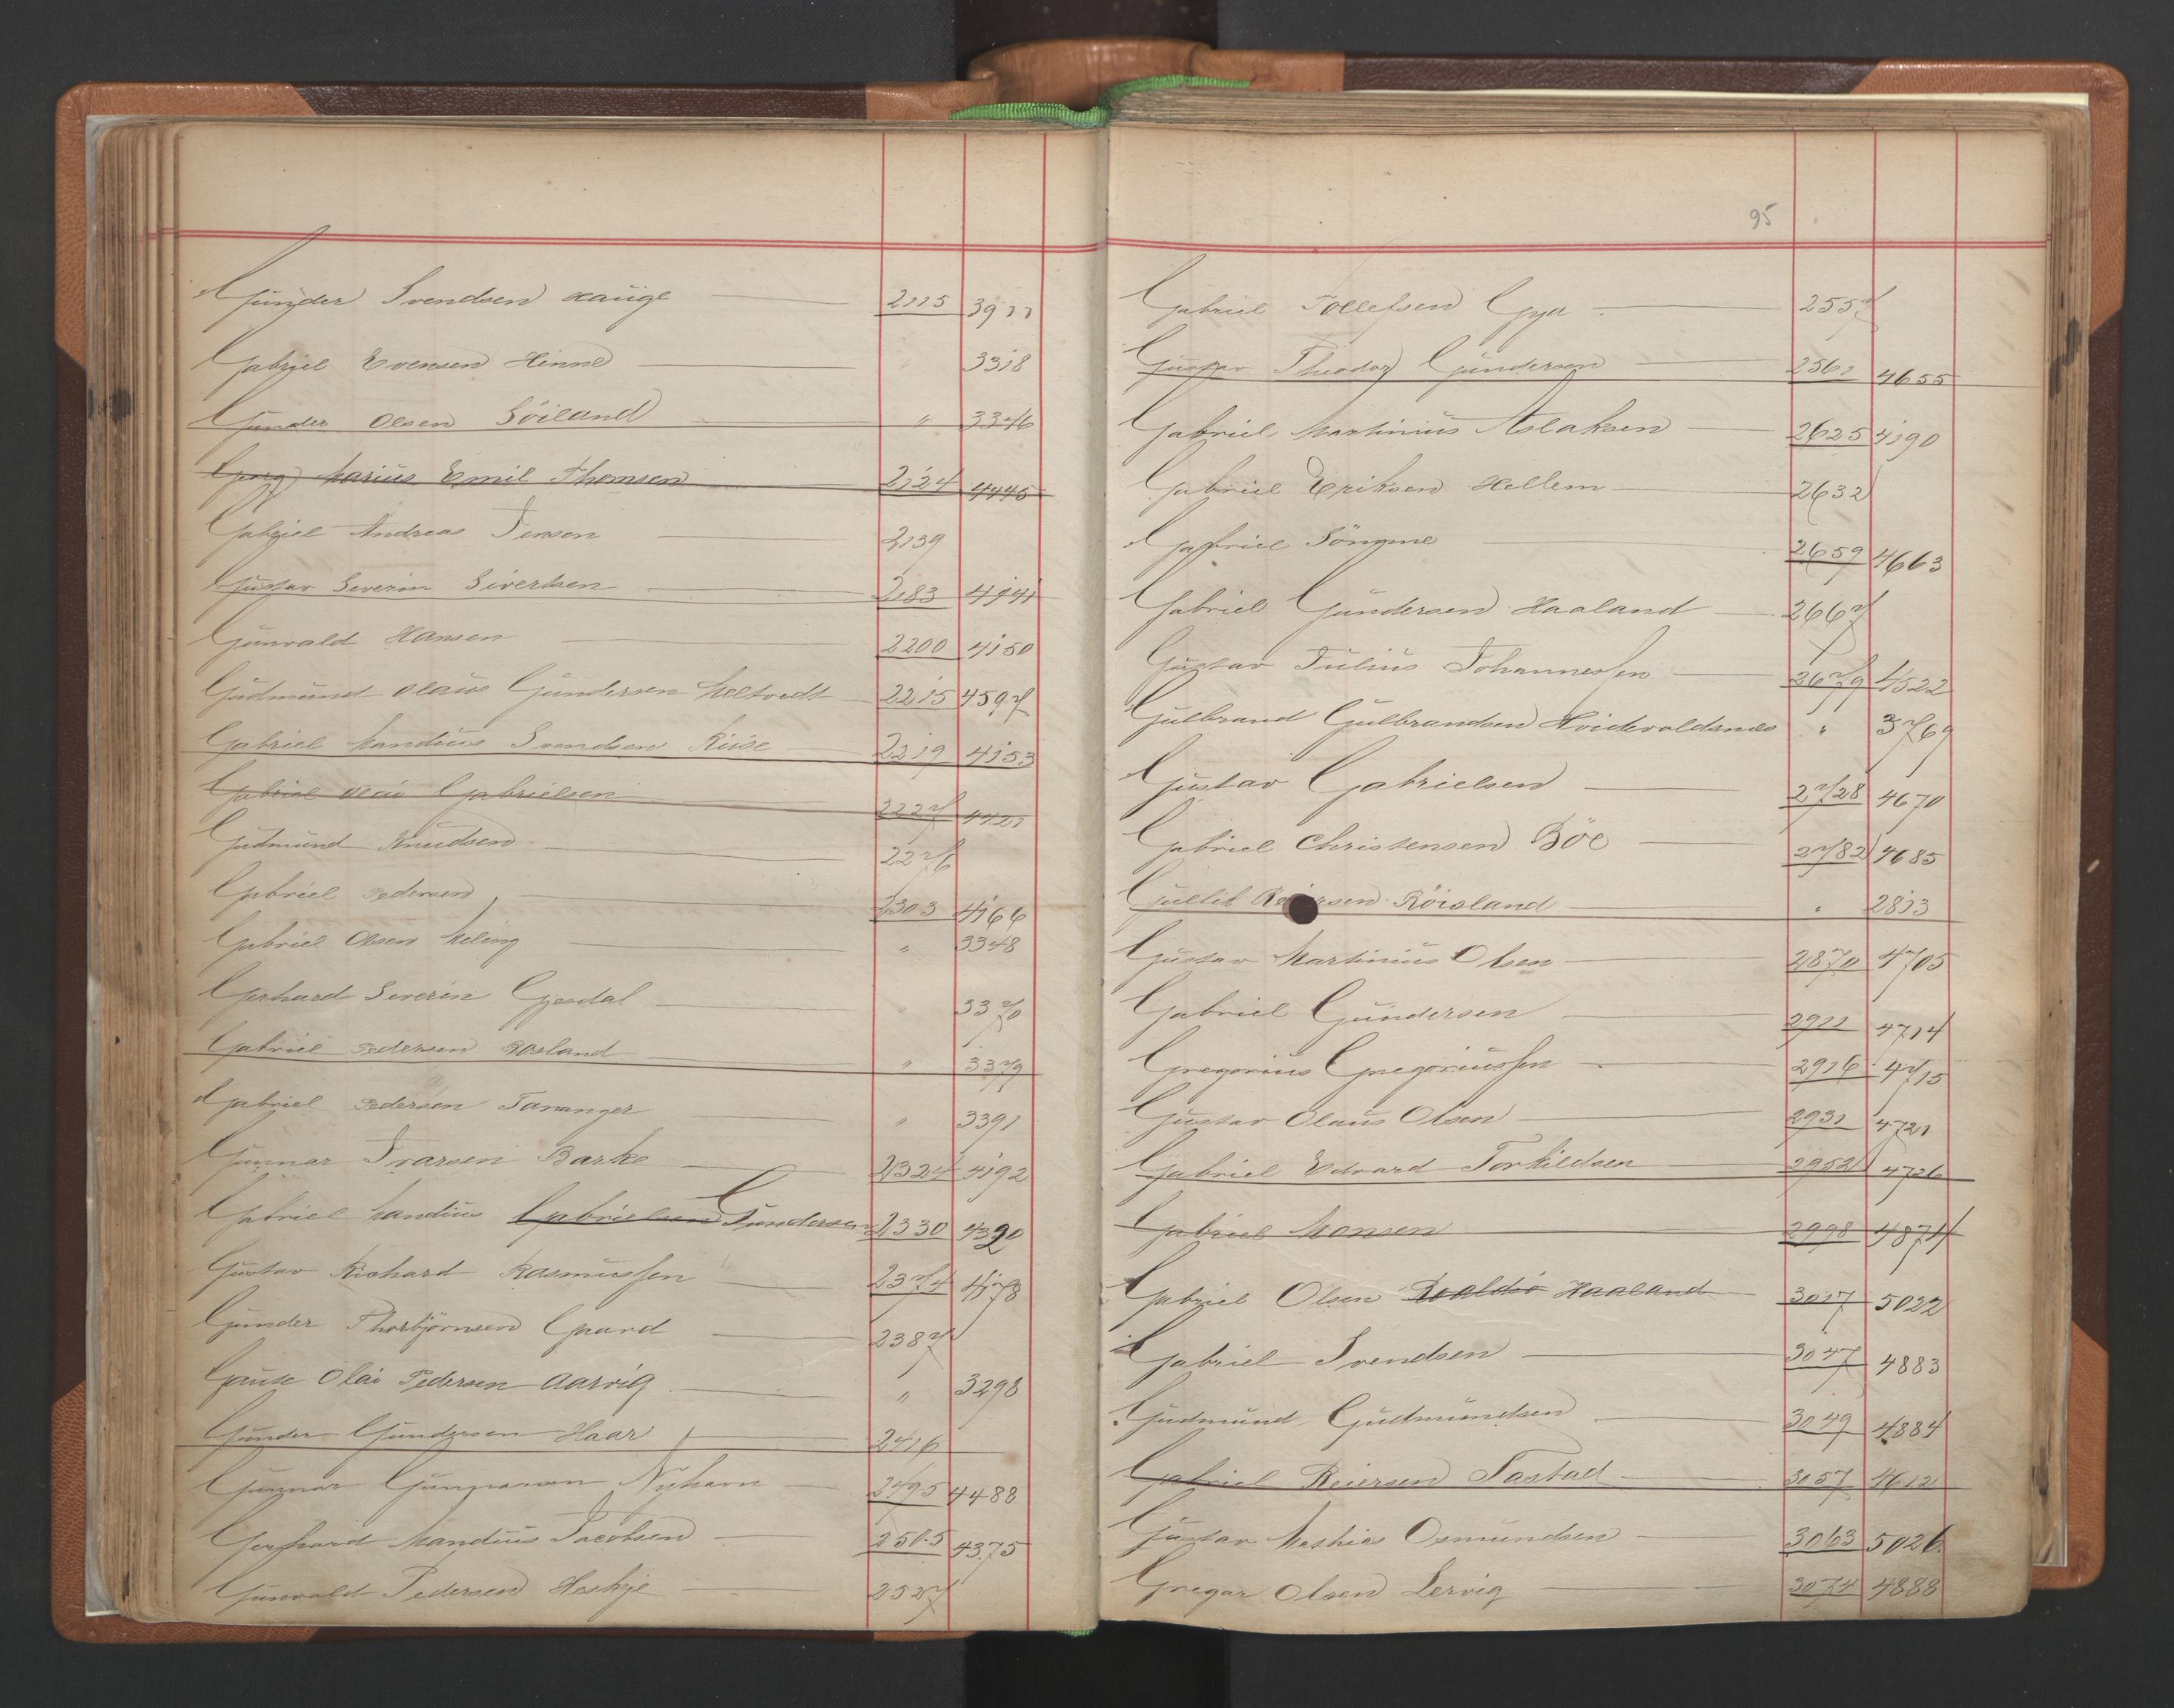 Gunder Svendsen Hauge 2115 3911
Gabriel Evensen Hinne 3318
Gunder Olsen Söiland " 3346
Georg Marius Emil Thomsen 2124 4445
Gabriel Andreas Jensen 2139
Gustav Severin Sivertsen 2183 4141
Gunvald Hansen 2200 4150
Gudmund Olaus Gundersen Meltvedt 2215 4597
Gabriel Mandius Svendsen Riise 2219 4153
Gabriel Olai Gabrielsen 2227 4421
Gudmund Knudsen 2276
Gabriel Pedersen 2303 4166
Gabriel Olsen Meling " 3348
Gerhard Severin Gjesdal " 3370
Gabriel Pedersen Rosland " 3379
Gabriel Pedersen Tananger " 3391
Gunnar Ivarsen Barke 2324 4192
Gabriel Mandius Gabrielsen Gundersen 2330 4320
Gustav Richard Rasmussen 2374 4178
Gunder Thorbjörnsen Gaard 2387
Gause Olai Pedersen Aarvig " 3298
Gunder Gundersen Haar 2416
Gunnar Gunnarsen Nyhavn 2495 4488
Gerhard Mandius Jacobsen 2505 4375
Gunvald Pedersen Heskje 2527
95
Gabriel Tollefsen Gya 2557
Gustav Theodor Gundersen 2561 4655
Gabriel Martinius Aslaksen 2625 4190
Gabriel Eriksen Hellem 2632
Gabriel Sömme 2659 4663
Gabriel Gundersen Haaland 2667
Gustav Julius Johannessen 2679 4522
Gulbrand Gulbrandsen Hvidevoldsnes " 3769
Gustav Gabrielsen 2728 4670
Gabriel Christensen Böe 2782 4685
Gullik Röisland " 2813
Gustav Martinius Olsen 2870 4705
Gabriel Gundersen 2911 4714
Gregorius Gregoriussen 2916 4715
Gustav Olaus Olsen 2931 4721
Gabriel Edvard Torkildsen 2952 4726
Gabriel Monsen 2998 4874
Gabriel Olsen Roaldsö Haaland 3017 5022
Gabriel Svendsen 3047 4883
Gudmund Gudmundsen 3049 4884
Gabriel Reiersen Tastad 3057 4612
Gustav Mathias Osmundsen 3063 5026
Gregar Olsen Lervig 3074 4888